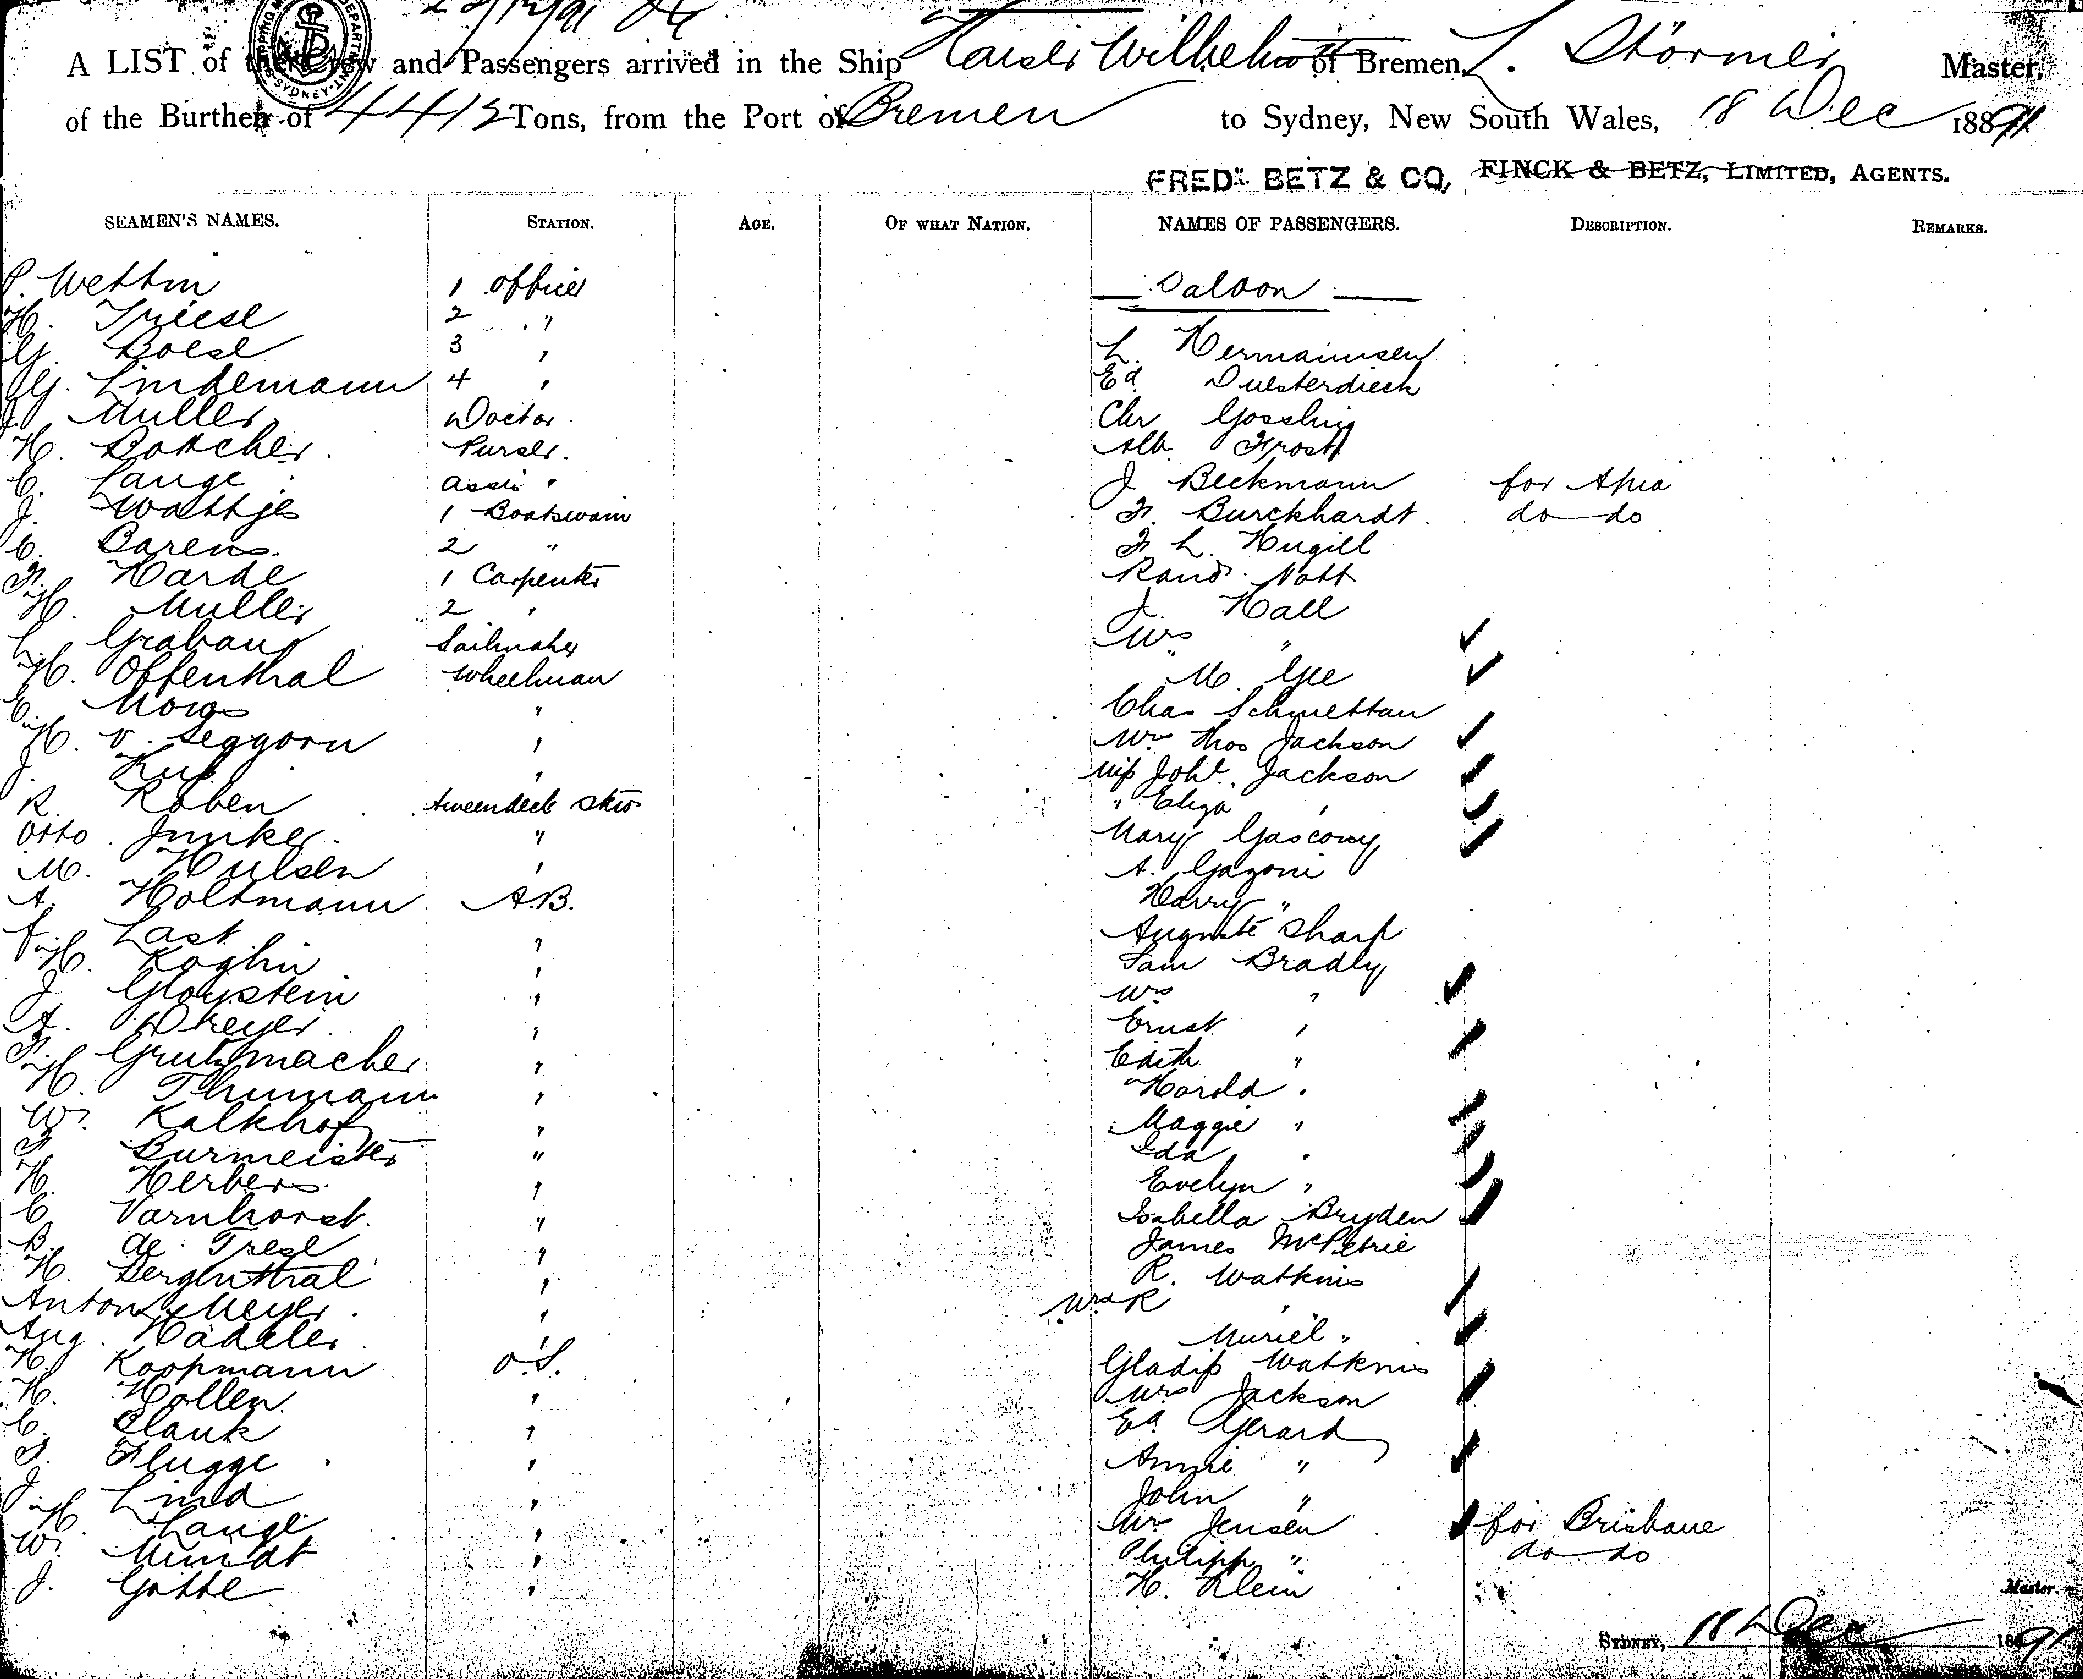 A LIST of the Crew and Passengers arrived in the Ship Kaiser Wilhelm II of Bremen, L. Störmer Master,
of the Burthen of 4413 Tons, from the Port of Bremen to Sydney, New South Wales, 18 Dec 1891
FREDK BETZ & CO, FINCK & BETZ, LIMITED, AGENTS.
SEAMEN'S NAMES. STATION. AGE. OF WHAT NATION. NAMES OF PASSENGERS. DESCRIPTION. REMARKS.
P. Wettin 1 officer
Saloon
H. Triesl 2 "
G. Boesl 3 "
L. Hermannsen
G. Lindemann 4 "
Ed Duesterdieck
J. Muller Doctor
Chr Gosslin
H. Bottcher Purser.
Alb. Frost
C. Lange assis "
J Beckmann for Apia
J. Wattjes 1 Boatswain
F. Burckhardt do do
C. Barens 2 "
F L. Hugill
F. Harde 1 Carpenter
Rand. Nott
H. Muller 2 "
J. Hall
L. Grabau Sailmaker
Mrs "
H. Offenthal Wheelman
" M. Gee
C. Morgs "
Chas Schmettau
H. v. Seggorn "
Mrs Thos Jackson
J. "
Miss Joht. Jackson
R. Roben tweendeck stws
" Eliza "
Otto Junker "
Mary Gascony
M. Hulsen "
A. Gazoni
A. Holtmann A.B.
Harry "
F. Last "
Auguste Sharp
H. Koglin "
Sam Bradly
J Gloystein "
Mrs "
A. Dreyer "
Ernst "
F. Grutzmacher "
Edith "
H. Thumann "
Harold "
W. Kalkhof "
Maggie "
F Burmeister "
Ida "
H. Herbers "
Evelyn "
C. Varnhorst "
Isabella Bryden
B. de Tresl "
James McPetrie
H. Bergenthal "
R. Watkins
Anton Meyer "
Mrs R "
Aug. Hadeler "
Muriel "
H. Koopmann O.S.
Gladis Watkins
H. Hollen "
Mrs Jackson
C. Blank "
Ed Gerard
F. Flugge "
Annie "
J. Lind "
John "
H. Lange "
Mrs Jensen for Brisbane
W. Mundt "
Philipp " do do
J. Gotte "
H. Klein
Master.
SYDNEY, 18th Dec 1891